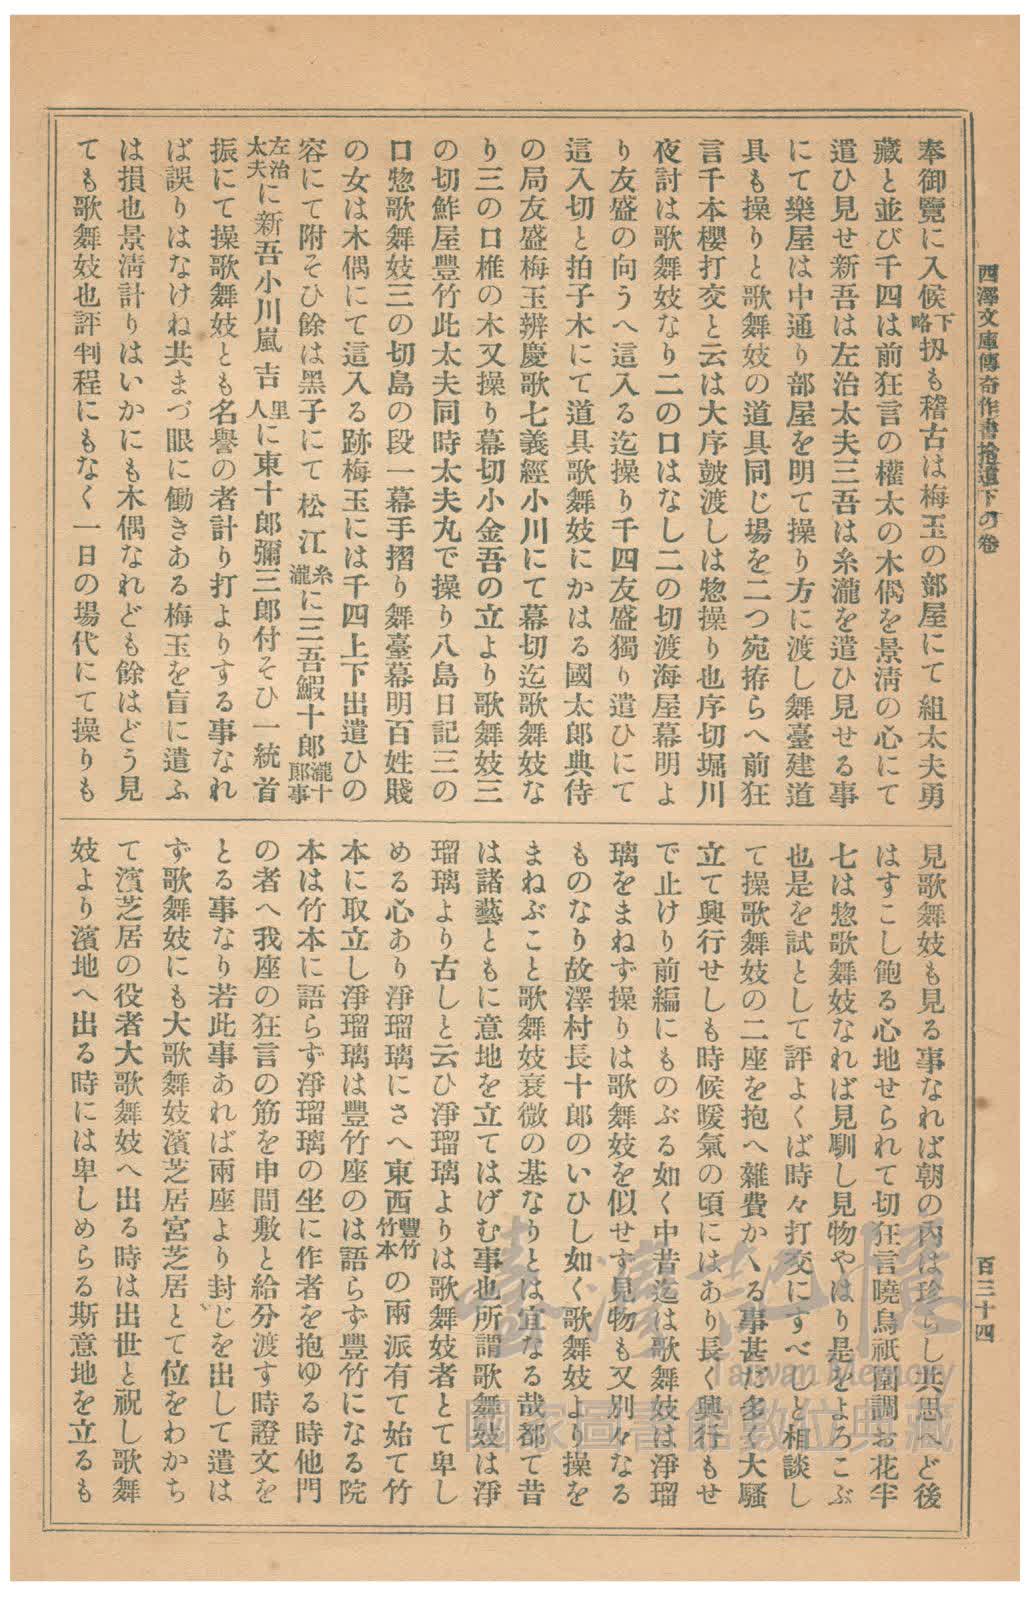 西澤文庫傳奇作書拾遺下の卷
百三十四
奉御覽に入候下略扨も稽古は梅玉の部屋にて組太夫勇
藏と並び千四は前狂言の權太の木偶を景淸の心にて
遣ひ見せ新吾は左治太夫三吾は糸瀧を遣ひ見せる事
にて樂屋は中通り部屋を明て操り方に渡し舞臺建道
具も操りと歌舞妓の道具同じ場を二つ宛拵らへ前狂
言千本櫻打交と云は大序皷渡しは惣操り也序切堀川
夜討は歌舞妓なり二の口はなし二の切渡海屋幕明よ
り友盛の向うへ這入る迄操り千四友盛獨り遣ひにて
這入切と拍子木にて道具歌舞妓にかはる國太郎典侍
の局友盛梅玉辨慶歌七義經小川にて幕切迄歌舞妓な
り三の口椎の木又操り幕切小金吾の立より歌舞妓三
の切鮓屋豐竹此太夫同時太夫丸で操り八島日記三の
口惣歌舞妓三の切島の段一幕手摺り舞臺幕明百姓賤
の女は木偶にて這入る跡梅玉には千四上下出遣ひの
容にて附そひ餘は黑子にて松江糸瀧に三吾鰕十郎瀧十郎事
左治太夫に新吾小川嵐吉里人に東十郎彌三郎付そひ一統首
振にて操歌舞妓とも名譽の者計り打よりする事なれ
ば誤りはなけね共まづ眼に働きある梅玉を盲に遣ふ
は損也景淸計りはいかにも木偶なれども餘はどう見
ても歌舞妓也評判程にもなく一日の場代にて操りも
見歌舞妓も見る事なれば朝の內は珍らし共思へど後
はすこし飽る心地せられて切狂言曉烏祇園調お花半
七は惣歌舞妓なれば見馴し見物やはり是をよろこぶ
也是を試として評よくば時々打交にすべしと相談し
て操歌舞妓の二座を抱へ雜費かゝる事甚だ多く大騷
立て興行せしも時候暖氣の頃にはあり長く興行もせ
で止けり前編にものぶる如く中昔迄は歌舞妓は淨瑠
璃をまねず操りは歌舞妓を似せず見物も又別々なる
ものなり故澤村長十郎のいひし如く歌舞妓より操を
まねぶこと歌舞妓衰微の基なりとは宜なる哉都て昔
は諸藝ともに意地を立てはげむ事也所謂歌舞妓は淨
瑠璃より古しと云ひ淨瑠璃よりは歌舞妓者とて卑し
める心あり淨瑠璃にさへ東西豐竹竹本の兩派有て始て竹
本に取立し淨瑠璃は豐竹座のは語らず豐竹になる院
本は竹本に語らず淨瑠璃の坐に作者を抱ゆる時他門
の者へ我座の狂言の筋を申間敷と給分渡す時證文を
とる事なり若此事あれば兩座より封じを出して遣は
ず歌舞妓にも大歌舞妓濱芝居宮芝居とて位をわかち
て濱芝居の役者大歌舞妓へ出る時は出世と祝し歌舞
妓より濱地へ出る時には卑しめらる斯意地を立るも
臺灣記憶
Taiwan Memory
國家圖書館數位典藏